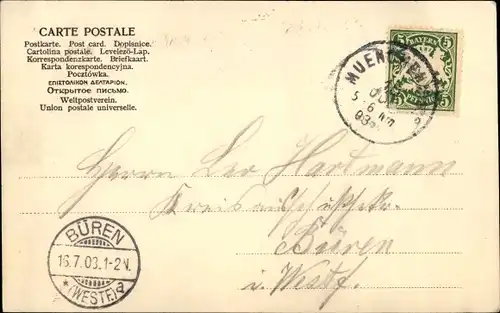 CARTE POSTALE
Postkarte. Post card. Dopisnice.
Cartolina postale. Levelező-Lap.
Korrespondenzkarte. Briefkaart.
Karta korespondencyjna.
Pocztówka.
ΕΠΙΣΤΟΛΙΚΟΝ ΔΕΛΤΑΡΙΟΝ.
Открытое письмо.
Weltpostverein.
Union postale universelle.
5 BAYERN 5
5 PFENNIG 5
MUEN
5-6 NM
03
Herrn Leo Hartmann
Büren
i. Westf.
BÜREN
16.7.03.1-2N.
* (WESTF.) a